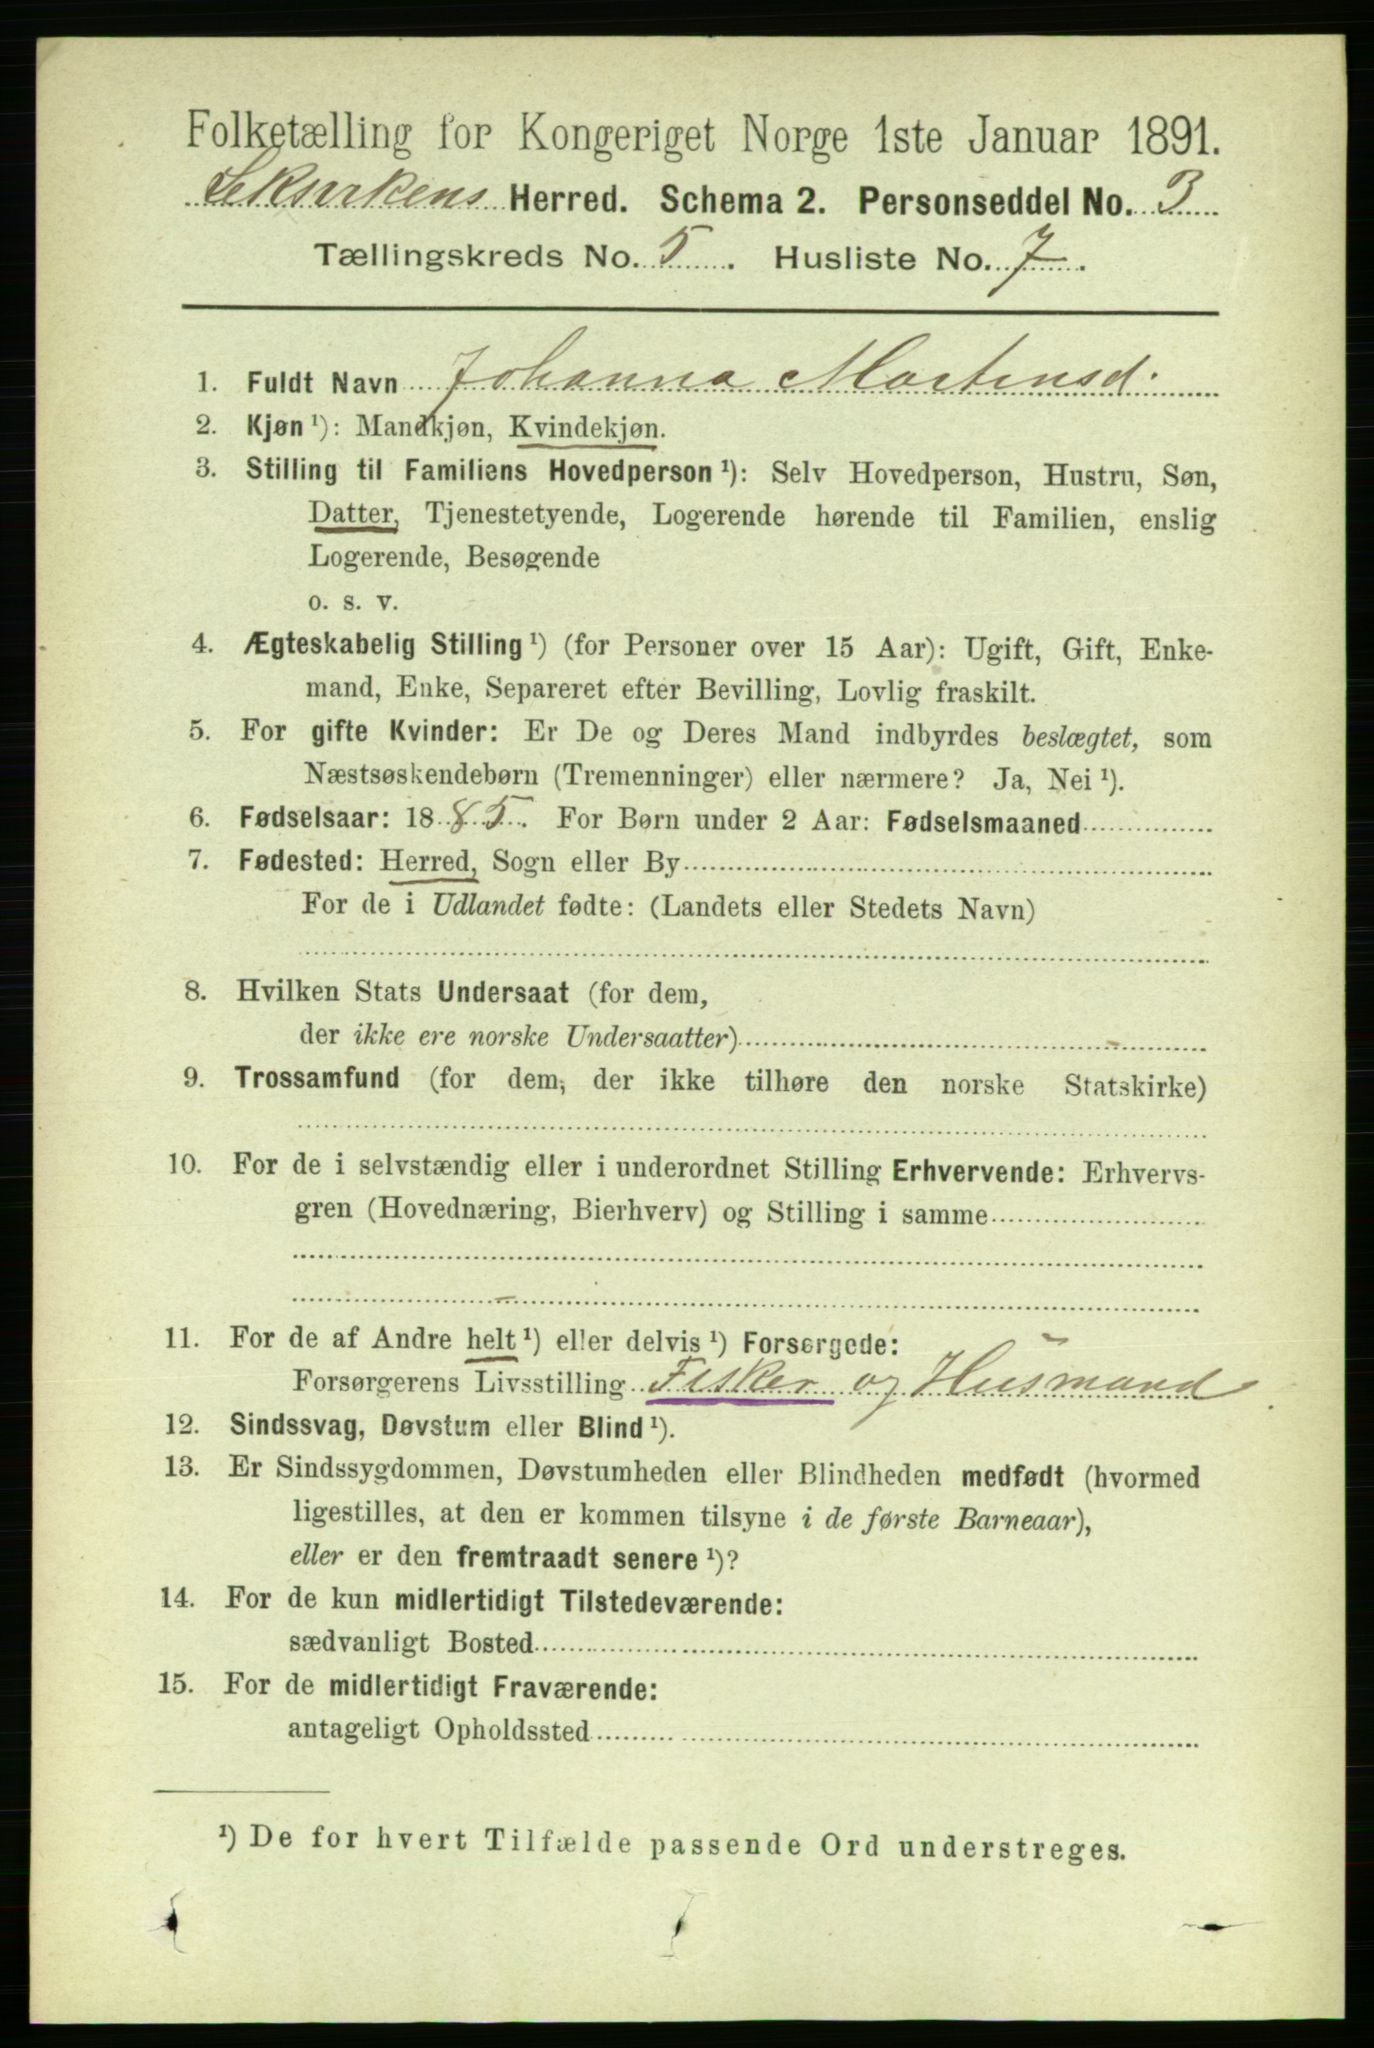 Folketælling for Kongeriget Norge 1ste Januar 1891.
Leksvikens Herred. Schema 2. Personseddel No. 3
Tællingskreds No. 5. Husliste No. 7.
1. Fuldt Navn Johanna Martinsd.
2. Kjøn ¹): Mandkjøn, Kvindekjøn.
3. Stilling til Familiens Hovedperson ¹): Selv Hovedperson, Hustru, Søn,
Datter, Tjenestetyende, Logerende hørende til Familien, enslig
Logerende, Besøgende
o. s. v.
4. Ægteskabelig Stilling ¹) (for Personer over 15 Aar): Ugift, Gift, Enke-
mand, Enke, Separeret efter Bevilling, Lovlig fraskilt.
5. For gifte Kvinder: Er De og Deres Mand indbyrdes beslægtet, som
Næstsøskendebørn (Tremenninger) eller nærmere? Ja, Nei ¹).
6. Fødselsaar: 1885. For Børn under 2 Aar: Fødselsmaaned
7. Fødested: Herred, Sogn eller By
For de i Udlandet fødte: (Landets eller Stedets Navn)
8. Hvilken Stats Undersaat (for dem,
der ikke ere norske Undersaatter)
9. Trossamfund (for dem, der ikke tilhøre den norske Statskirke)
10. For de i selvstændig eller i underordnet Stilling Erhvervende: Erhvervs-
gren (Hovednæring, Bierhverv) og Stilling i samme
11. For de af Andre helt ¹) eller delvis ¹) Forsørgede:
Forsørgerens Livsstilling Fisker og Husmand
12. Sindssvag, Døvstum eller Blind ¹).
13. Er Sindssygdommen, Døvstumheden eller Blindheden medfødt (hvormed
ligestilles, at den er kommen tilsyne i de første Barneaar),
eller er den fremtraadt senere ¹)?
14. For de kun midlertidigt Tilstedeværende:
sædvanligt Bosted
15. For de midlertidigt Fraværende:
antageligt Opholdssted
¹) De for hvert Tilfælde passende Ord understreges.